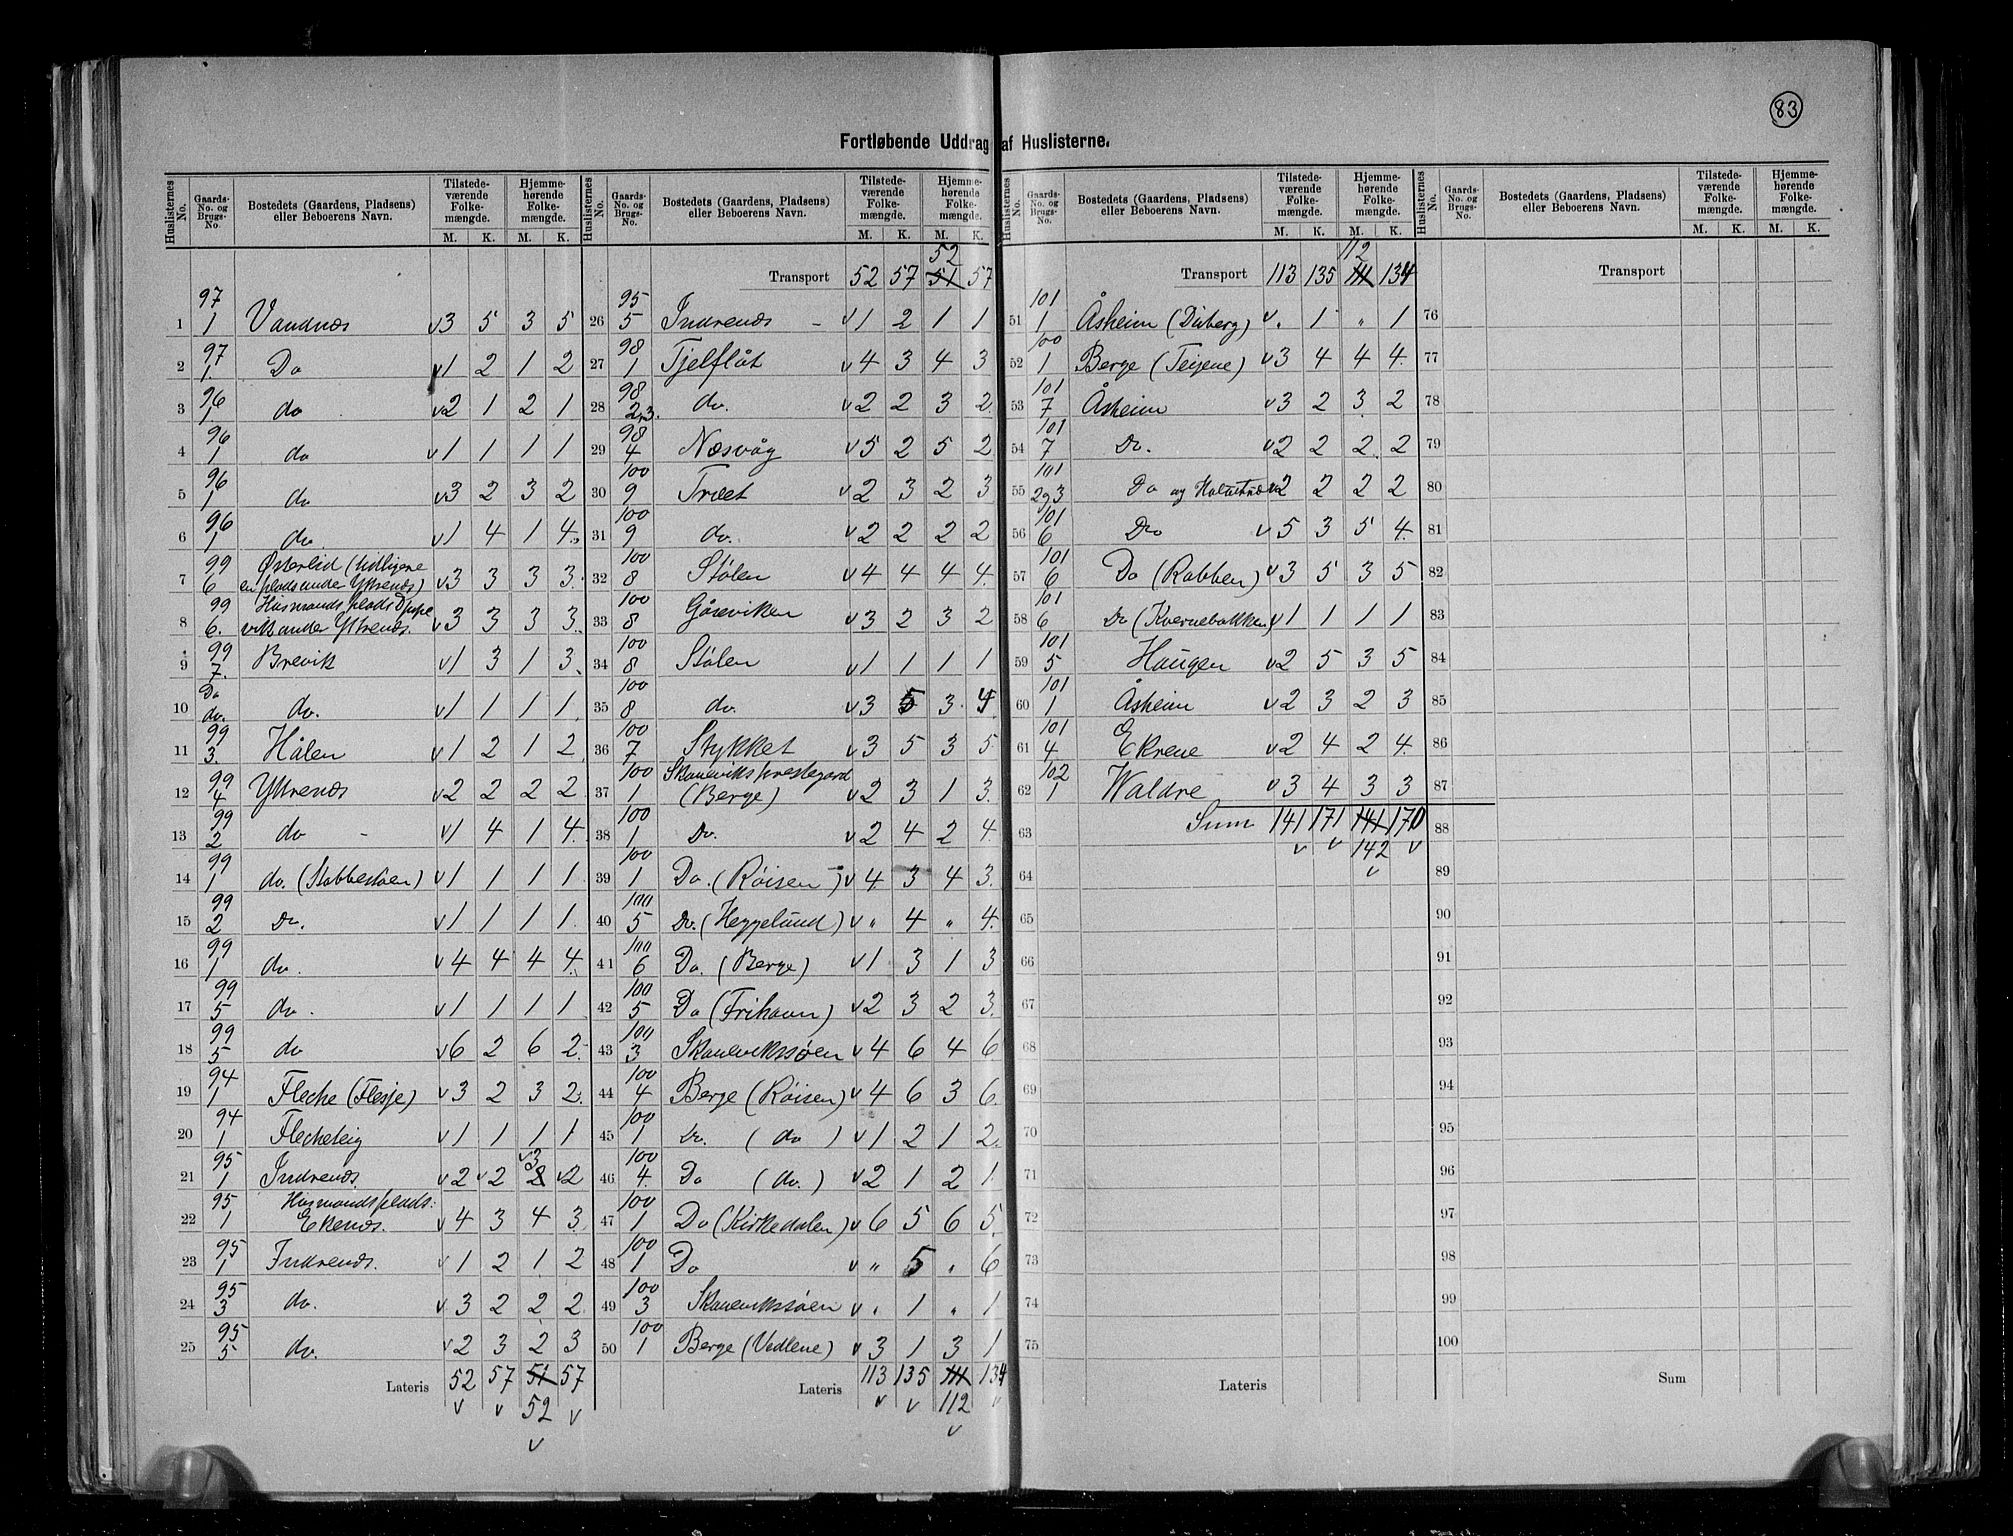 83
Fortløbende Uddrag af Huslisterne.
Huslisternes No. Gaards- No. og Brugs- No. Bostedets (Gaardens, Pladsens) eller Beboerens Navn. Tilstede- værende Folke- mængde. M. K. Hjemme- hørende Folke- mængde. M. K.
1 97 1 Vandnæs v3 5 3 5
2 97 1 Do v1 2 1 2
3 96 1 do v2 1 2 1
4 96 1 do v1 1 1 1
5 96 1 do v3 2 3 2
6 96 1 do. v1 4 1 4
7 99 6 Østerlid (tidligere en plads under Ytrenæs) v3 3 3 3
8 99 6. Husmandsplads Djupe vik under Ytrenæs. v3 3 3 3
9 99 7. Brevik v1 3 1 3
10 Do do. do. v1 1 1 1
11 99 3. Hålen v1 2 1 2
12 99 4 Ytrenæs v2 2 2 2
13 99 2 do - v1 4 1 4
14 99 1 do. (Stabbestøen) v1 1 1 1
15 99 2 Do. v1 1 1 1
16 99 1 do. v4 4 4 4
17 99 5 do. v1 1 1 1
18 99 5 do v6 2 6 2
19 94 1 Fleche (Flesje) v3 2 3 2
20 94 1 Flecheteig v1 1 1 1
21 95 1 Indrenæs. v2 v2 2 v3 v2
22 95 1 Husmandsplads: Ekenæs. v4 3 4 3
23 95 1 Indrenæs. v1 2 1 2
24 95 3 do. v3 2 2 2
25 95 5 do. v2 3 2 3
Lateris 52 57 51 57
v v 52 v
v
Huslisternes No. Gaards- No. og Brugs- No. Bostedets (Gaardens, Pladsens) eller Beboerens Navn. Tilstede- værende Folke- mængde. M. K. Hjemme- hørende Folke- mængde. M. K.
52
Transport 52 57 51 57
26 95 5 Indrenæs - v1 2 1 1
27 98 1 Tjelflåt v4 3 4 3
28 98 2,3. do. v2 2 3 2
29 98 4 Næsvåg v5 2 5 2
30 100 9 Træet v2 3 2 3
31 100 9 do. v2 2 2 2
32 100 8 Stølen v4 4 4 4
33 100 8 Gåseviken v3 2 3 2
34 100 8 Stølen v1 1 1 1
35 100 8 do. v3 5 3 4
36 100 7 Stykket v3 5 3 5
37 100 1 Skaneviks prestegard (Berge) v2 3 1 3
38 100 1 Do. v2 4 2 4
39 100 1 Do. (Røisen) v4 3 4 3
40 100 5 Do. (Heggelund) v " 4 " 4
41 100 6 Do. (Berge) v1 3 1 3
42 100 5 Do (Frihavn) v2 3 2 3
43 100 3 Skanevikssøen v4 6 4 6
44 100 4 Berge (Røisen) v4 6 3 6
45 100 1 Do. (do) v1 2 1 2
46 100 4. Do (do.) v2 1 2 1
47 100 1 Do (Kirkedalen) v6 5 6 5
48 100 1 Do v " 5 " 6
49 100 3 Skanevikssøen v " 1 " 1
50 100 1 Berge (Vedlene) v3 1 3 1
Lateris 113 135 111 134
v v 112 v
v
Huslisternes No. Gaards- No. og Brugs- No. Bostedets (Gaardens, Pladsens) eller Beboerens Navn. Tilstede- værende Folke- mængde. M. K. Hjemme- hørende Folke- mængde. M. K.
112
Transport 113 135 111 134
51 101 1 Åsheim (Daberg) v. 1 " 1
52 100 1 Berge (Teigene) v3 4 4 4
53 101 7 Åsheim v3 2 3 2
54 101 7 Do. v2 2 2 2
55 101 2og3 Do og v2 2 2 2
56 101 6 Do v5 3 5 4
57 101 6 Do (Rabben) v3 5 3 5
58 101 6 Do (Kvernebakken) v1 1 1 1
59 101 5 Haugen v2 5 3 5
60 101 1 Åsheim v2 3 2 3
61 101 4 Ekrene v2 4 2 4
62 102 1 Waldre v3 4 3 3
63 Sum 141 171 141 170
v v 142 v
v
64
65
66
67
68
69
70
71
72
73
74
75
Lateris
Huslisternes No. Gaards- No. og Brugs- No. Bostedets (Gaardens, Pladsens) eller Beboerens Navn. Tilstede- værende Folke- mængde. M. K. Hjemme- hørende Folke- mængde. M. K.
Transport
76
77
78
79
80
81
82
83
84
85
86
87
88
89
90
91
92
93
94
95
96
97
98
99
100
Sum